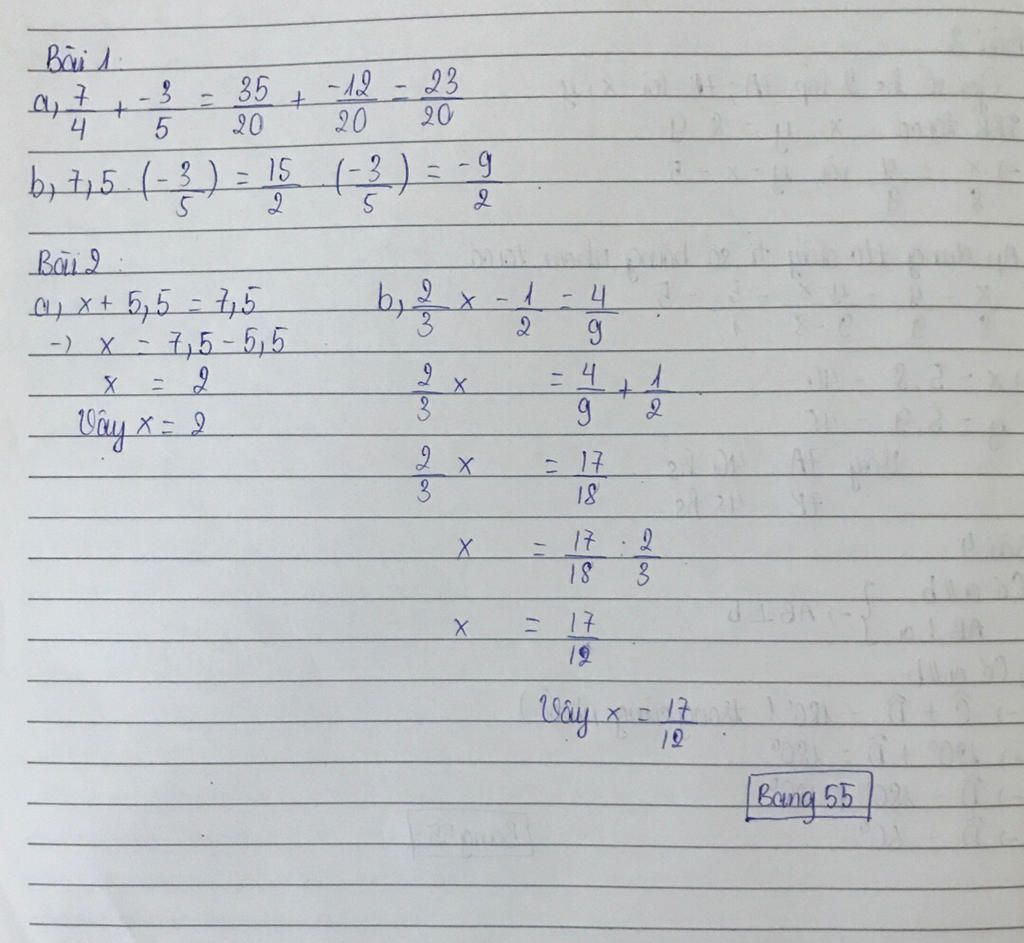 Bài 1:
a, 7/4 + -3/5 = 35/20 + -12/20 = 23/20
b, 7,5 . (-3/5) = 15/2 . (-3/5) = -9/2
Bài 2:
a, x + 5,5 = 7,5
→ x = 7,5 - 5,5
x = 2
Vậy x = 2
b, 2/3 x - 1/2 = 4/9
2/3 x = 4/9 + 1/2
2/3 x = 17/18
x = 17/18 : 2/3
x = 17/12
Vậy x = 17/12
Bang 55